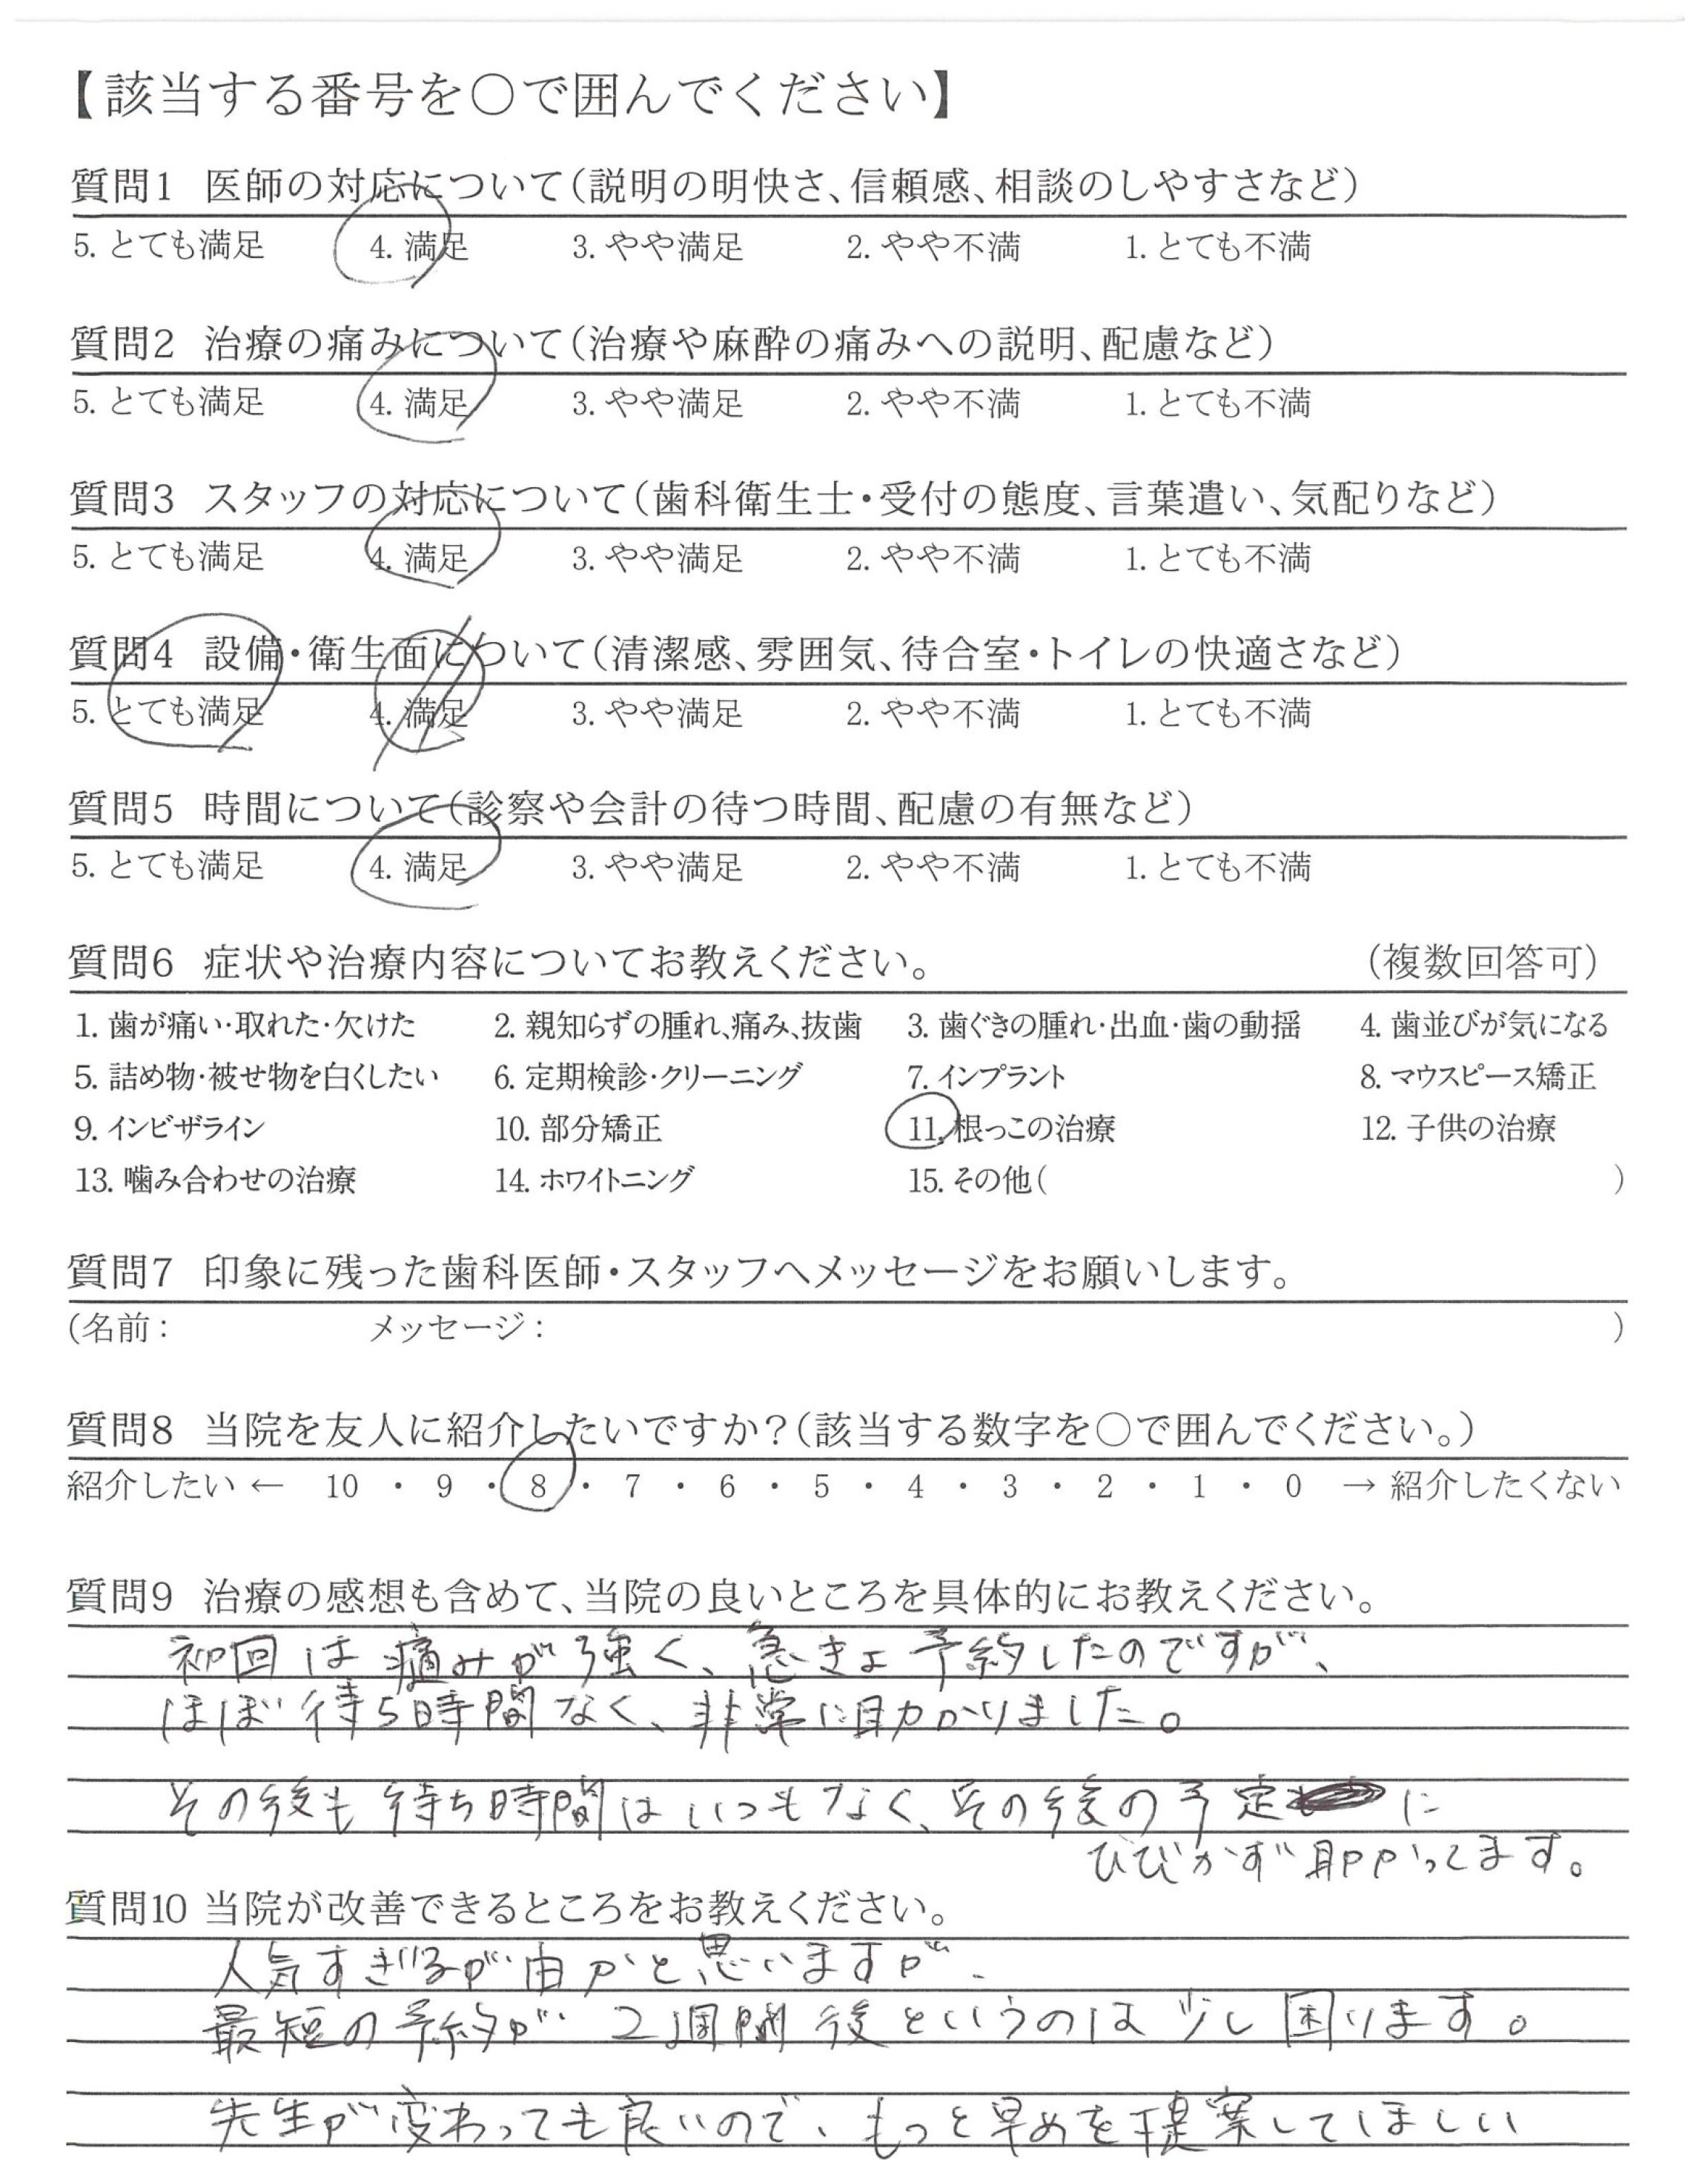 【該当する番号を○で囲んでください】
質問1 医師の対応について(説明の明快さ、信頼感、相談のしやすさなど)
5. とても満足 4. 満足 3. やや満足 2. やや不満 1. とても不満
質問2 治療の痛みについて(治療や麻酔の痛みへの説明、配慮など)
5. とても満足 4. 満足 3. やや満足 2. やや不満 1. とても不満
質問3 スタッフの対応について(歯科衛生士・受付の態度、言葉遣い、気配りなど)
5. とても満足 4. 満足 3. やや満足 2. やや不満 1. とても不満
質問4 設備・衛生面について(清潔感、雰囲気、待合室・トイレの快適さなど)
5. とても満足 4. 満足 3. やや満足 2. やや不満 1. とても不満
質問5 時間について(診察や会計の待つ時間、配慮の有無など)
5. とても満足 4. 満足 3. やや満足 2. やや不満 1. とても不満
質問6 症状や治療内容についてお教えください。 (複数回答可)
1. 歯が痛い・取れた・欠けた 2. 親知らずの腫れ、痛み、抜歯 3. 歯ぐきの腫れ・出血・歯の動揺 4. 歯並びが気になる
5. 詰め物・被せ物を白くしたい 6. 定期検診・クリーニング 7. インプラント 8. マウスピース矯正
9. インビザライン 10. 部分矯正 11. 根っこの治療 12. 子供の治療
13. 噛み合わせの治療 14. ホワイトニング 15. その他( )
質問7 印象に残った歯科医師・スタッフへメッセージをお願いします。
(名前: メッセージ: )
質問8 当院を友人に紹介したいですか?(該当する数字を○で囲んでください。)
紹介したい ← 10 ・ 9 ・ 8 ・ 7 ・ 6 ・ 5 ・ 4 ・ 3 ・ 2 ・ 1 ・ 0 → 紹介したくない
質問9 治療の感想も含めて、当院の良いところを具体的にお教えください。
初回は痛みが強く、急きょ予約したのですが、
ほぼ待ち時間なく、非常に助かりました。
その後も待ち時間はいつもなく、その後の予定に
ひびかず助かってます。
質問10 当院が改善できるところをお教えください。
人気すぎるが由かと思いますが、
最短の予約が2週間後というのは少し困ります。
先生が変わっても良いので、もっと早めを提案してほしい